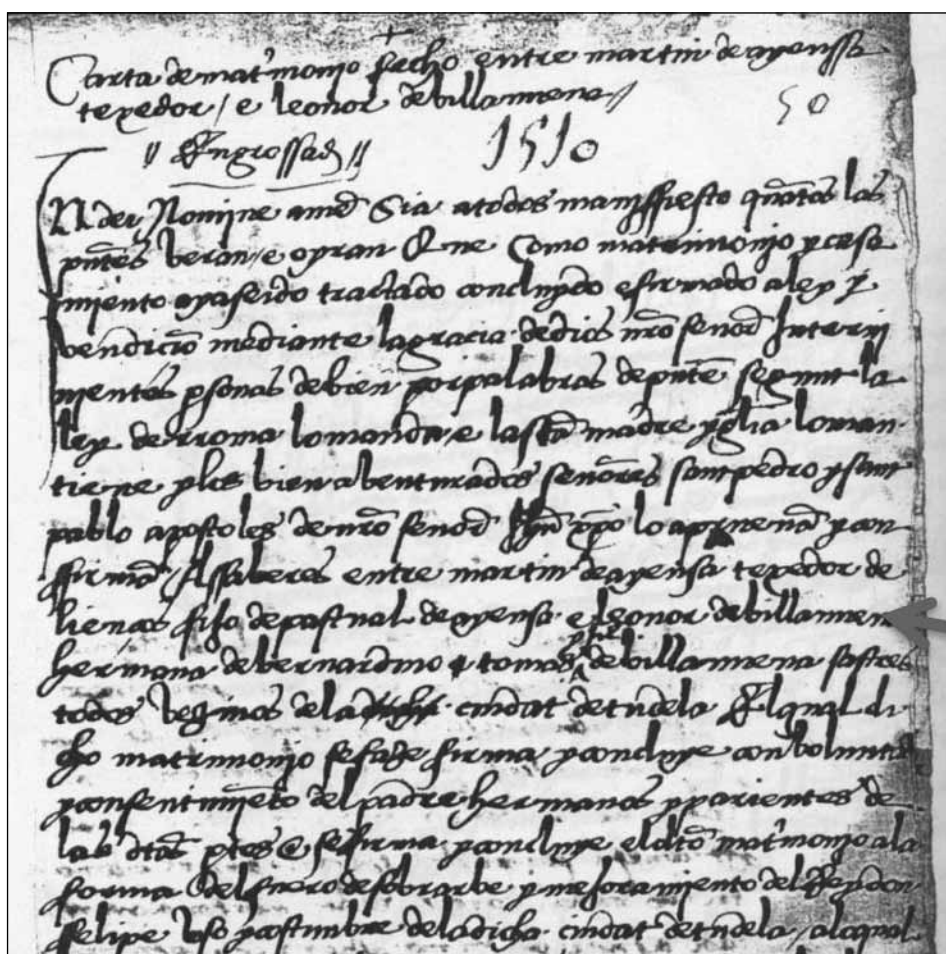 Carta de matrimonio fecho entre martin de ayenssa
texedor / e leonor de billamena //
50
// Engrossad //
1510
N dei Nomine amen Sia a todos maniffiesto quantos las
pntes veran e oyran Que Como matrimonio y casa
miento aya seido tractado concluydo e firmado a ley y
bendicion mediante la gracia de dios nro senor Interbi
nientes psonas de bien por palabras de pnte segunt la
ley de rroma lo manda, e la sta madre yglia lo man
tiene y los bien abenturados senores sam pedro y sam
pablo apostoles de nro senor Jhu xpo lo apruevan y con
ffirman / Assaber es entre martin de ayensa texedor de
liencos fijo de pascual de ayensa e leonor de billamen
hermana de bernardino e tomas de billamena sastres
todos vezinos de la ciudat de tudela El qual di
cho matrimonio se faze firma y concluye con boluntat
y consentimiento del padre hermanos y parientes de
las dtas ptes e se firma y concluye el dito matrimonio a la
forma del fuero de sobrarbe y mejoramiento del Rey don
felipe uso y costumbre de la dicha ciudat de tudela / al qual